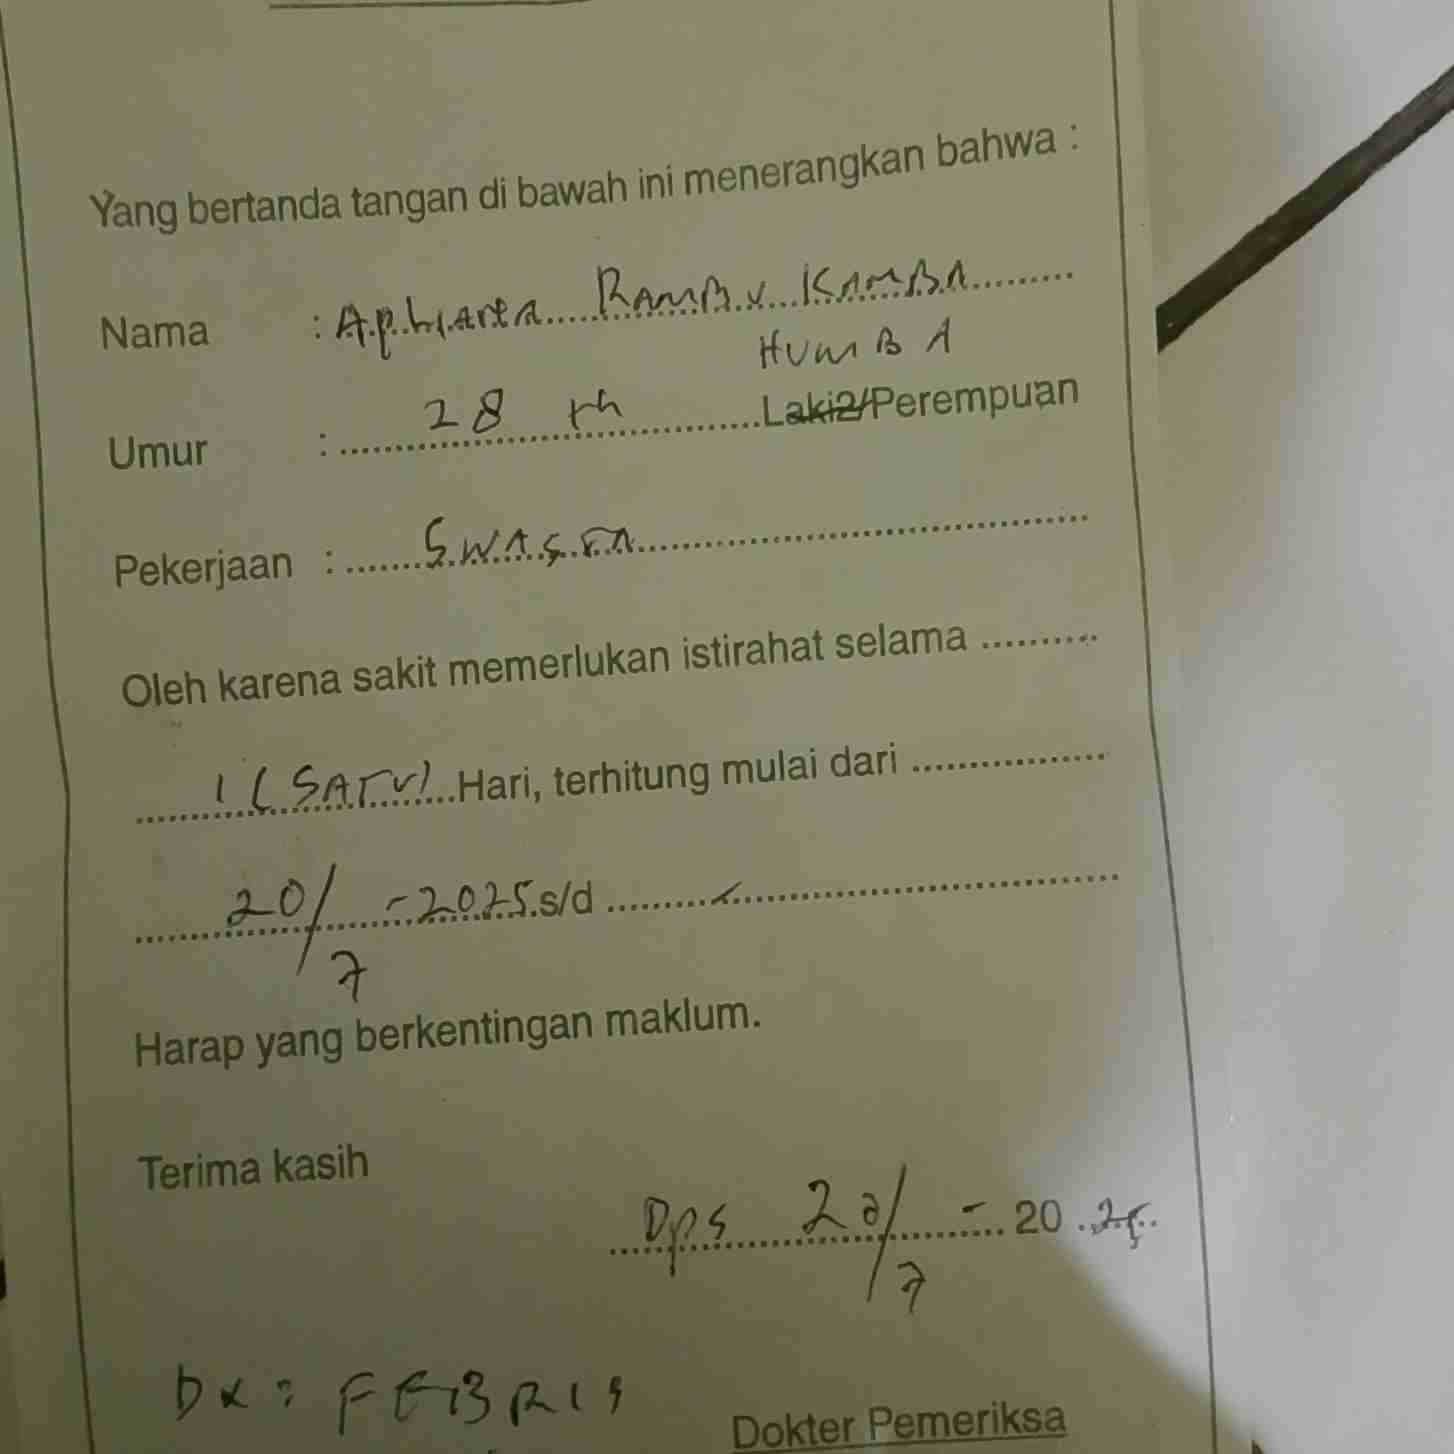 Yang bertanda tangan di bawah ini menerangkan bahwa :
Nama : RAMBU KAMBA
HUMBA
Umur : 28 th Laki2/Perempuan
Pekerjaan : SWASTA
Oleh karena sakit memerlukan istirahat selama
1 (SATU) Hari, terhitung mulai dari
20/7 - 2025 s/d
Harap yang berkentingan maklum.
Terima kasih
Dps 20/7 - 20 25
Dx : FEBRIS
Dokter Pemeriksa